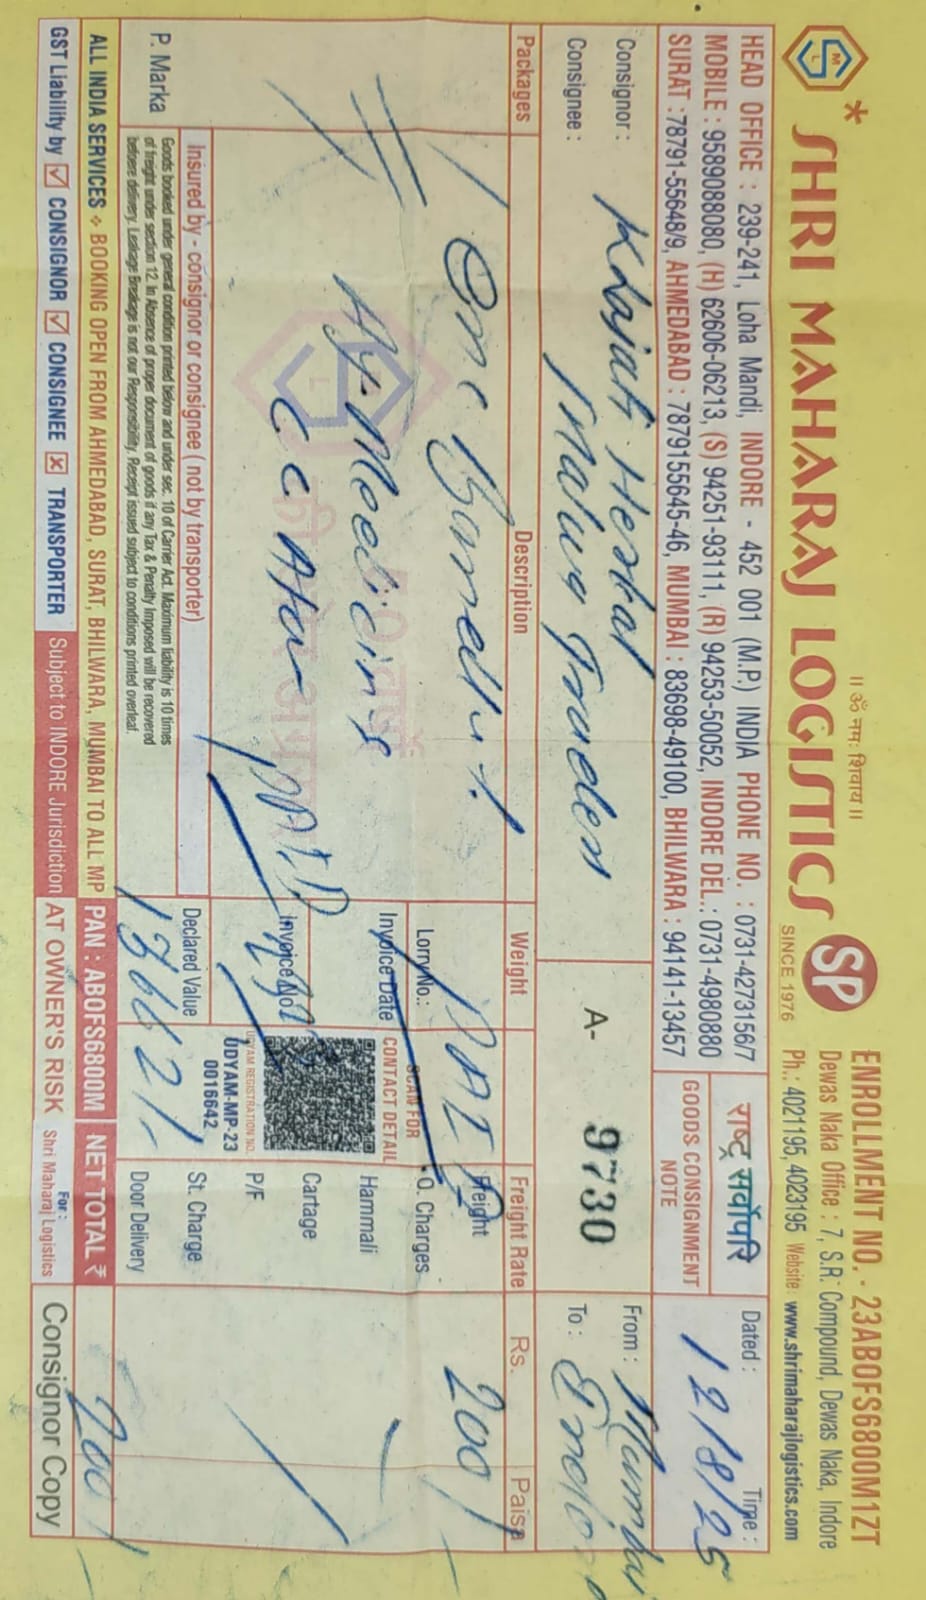 ।। ॐ नमः शिवाय ।।
ENROLLMENT NO. - 23ABOFS6800M1ZT
SHRI MAHARAJ LOGISTICS SP
SINCE 1976
Dewas Naka Office : 7, S.R. Compound, Dewas Naka, Indore
Ph.: 4021195, 4023195 Website: www.shrimaharajlogistics.com
HEAD OFFICE : 239-241, Loha Mandi, INDORE - 452 001 (M.P.) INDIA PHONE NO. : 0731-4273156/7
MOBILE : 9589088080, (H) 62606-06213, (S) 94251-93111, (R) 94253-50052, INDORE DEL.: 0731-4980880
SURAT : 78791-55648/9, AHMEDABAD : 7879155645-46, MUMBAI : 83698-49100, BHILWARA : 94141-13457
राष्ट्र सर्वोपरि
GOODS CONSIGNMENT
NOTE
Dated : Time :
12/8/25
Consignor : Herbal
Consignee : Malwa Traders
A- 9730
From : Mumbai
To : Indo
Packages Description Weight Freight Rate Rs. Paisa
1 One
Ay. Medicine
PAID
Lorry No.:
Invoice Date
Invoice No.
Declared Value
136621/-
SCAN FOR
CONTACT DETAIL
UDYAM REGISTRATION NO.
UDYAM-MP-23
0016642
Freight 200/
O. Charges
Hammali
Cartage
P/F
St. Charge
Door Delivery
PAID
Insured by - consignor or consignee ( not by transporter)
P. Marka
Goods booked under general condition printed below and under sec. 10 of Carrier Act. Maximum liability is 10 times
of freight under section 12. In Absence of proper document of goods if any Tax & Penalty Imposed will be recovered
before delivery. Leakage Breakage is not our Responsibility. Receipt issued subject to conditions printed overleaf.
ALL INDIA SERVICES BOOKING OPEN FROM AHMEDABAD, SURAT, BHILWARA, MUMBAI TO ALL MP PAN : ABOFS6800M NET TOTAL ₹ 200/
GST Liability by ☑ CONSIGNOR ☑ CONSIGNEE ☒ TRANSPORTER Subject to INDORE Jurisdiction AT OWNER'S RISK
For :
Shri Maharaj Logistics
Consignor Copy